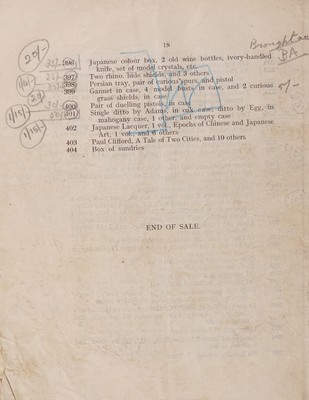 18
Broughton
BA
25/-
396 Japanese colour box, 2 old wine bottles, ivory-handled
knife, set of model crystals, etc.
397 Two rhino. hide shields, and 3 others
398 Persian tray, pair of curious spurs, and pistol
399 Gannet in case, 4 model boats in case, and 2 curious
grass shields, in case
5/-
400 Pair of duelling pistols, in case
401 Single ditto by Adams, in oak case, ditto by Egg, in
mahogany case, 1 other, and empty case
402 Japanese Lacquer, 1 vol., Epochs of Chinese and Japanese
Art, 1 vol., and 6 others
403 Paul Clifford, A Tale of Two Cities, and 10 others
404 Box of sundries
END OF SALE.